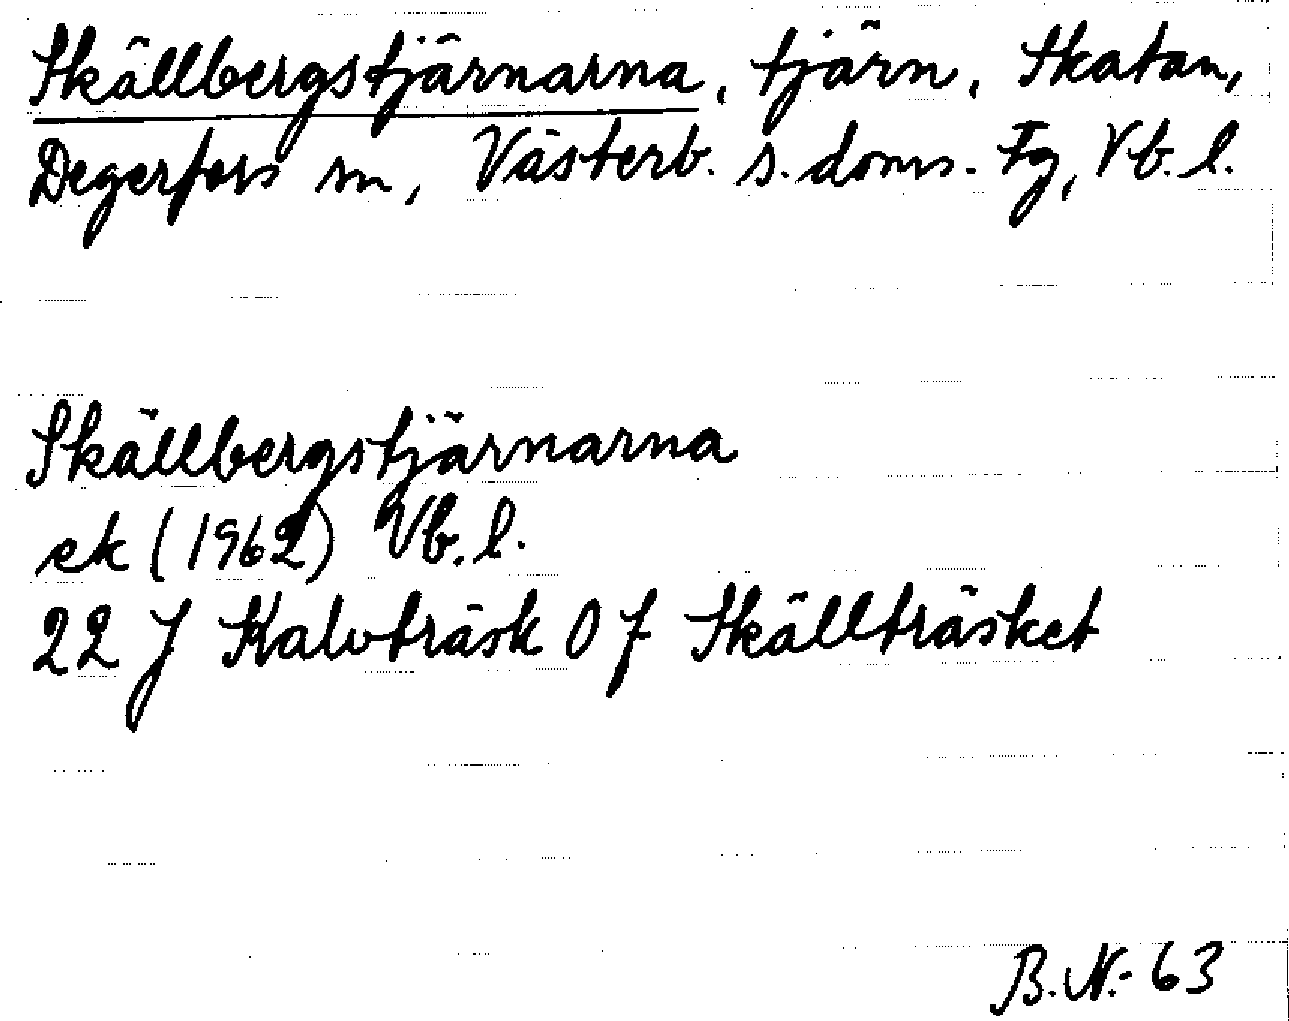 Skällbergstjärnarna, tjärn, Skatan,
Degerfors sn, Västerb. s. doms. Fg, Vb. l.
Skällbergstjärnarna
ek (1962) Vb. l.
22 J Kalvträsk 0 f Skällträsket
B. N. - 63